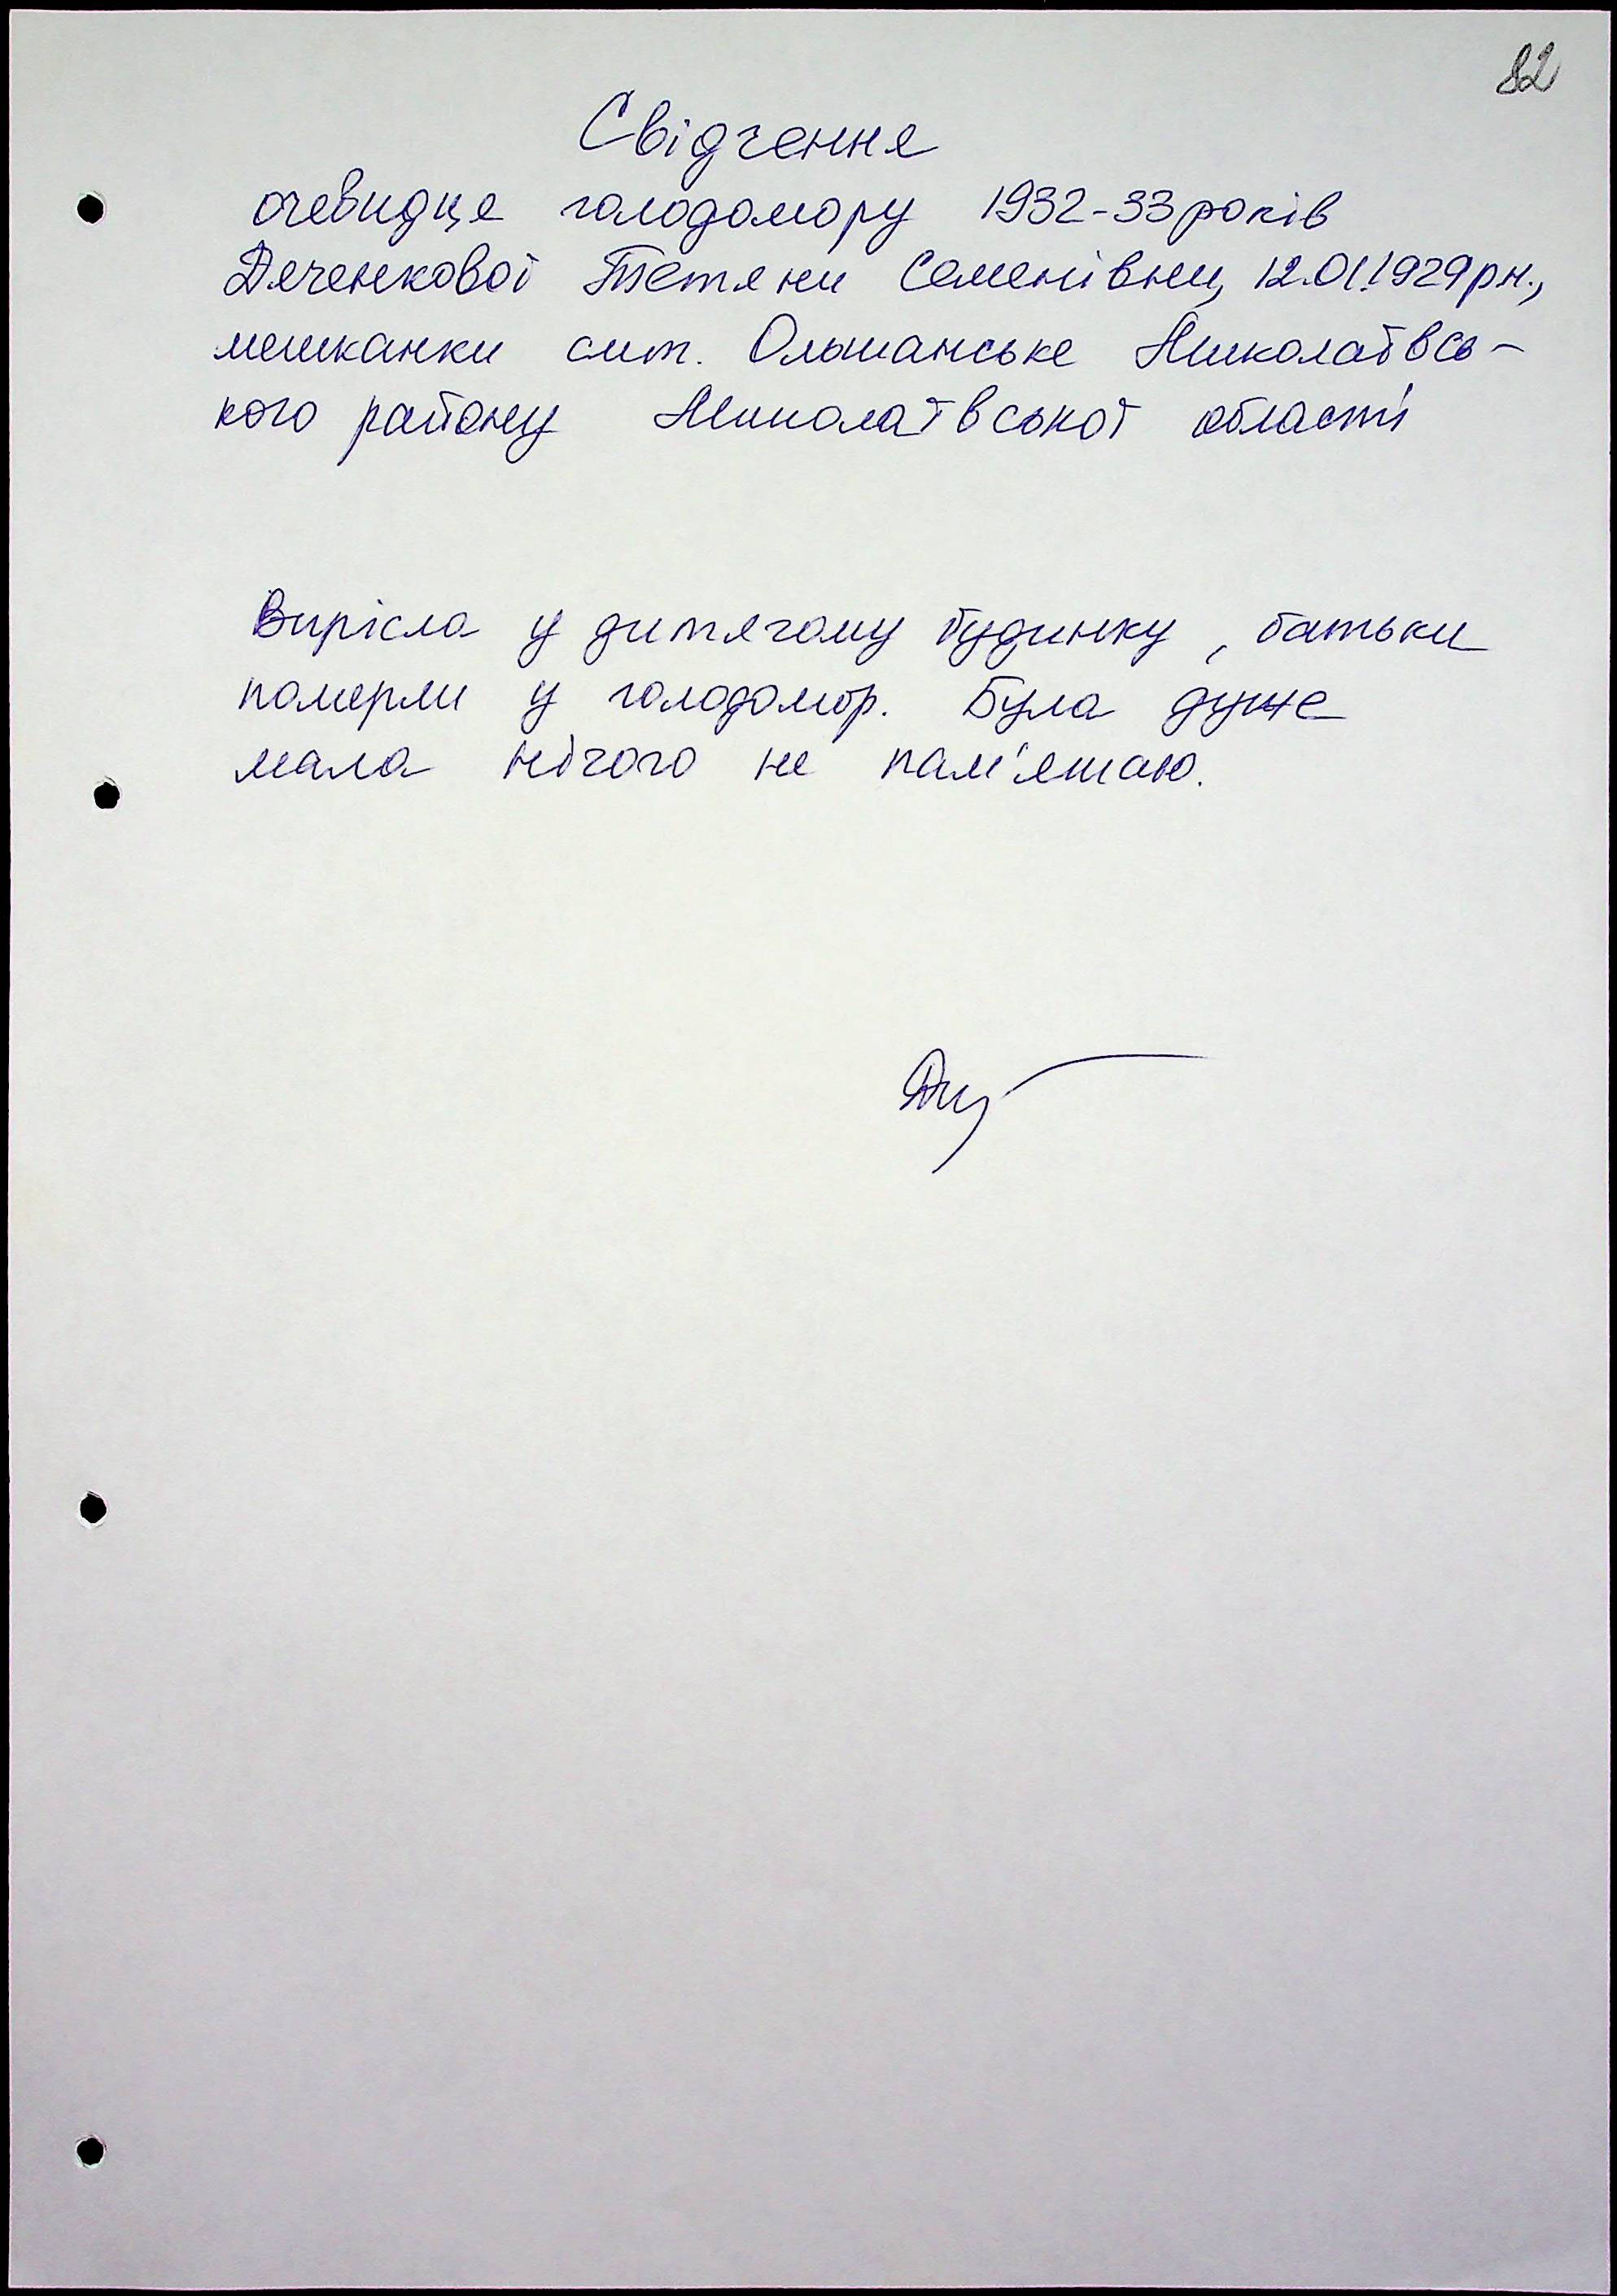 82
Свідчення
очевидця голодомору 1932-33 років
Дяченкової Тетяни Семенівни, 12.01.1929 рн.,
мешканки смт. Ольшанське Миколаївсь-
кого району Миколаївської області
Виросла у дитячому будинку, батьки
померли у голодомор. Була дуже
мала нічого не пам'ятаю.